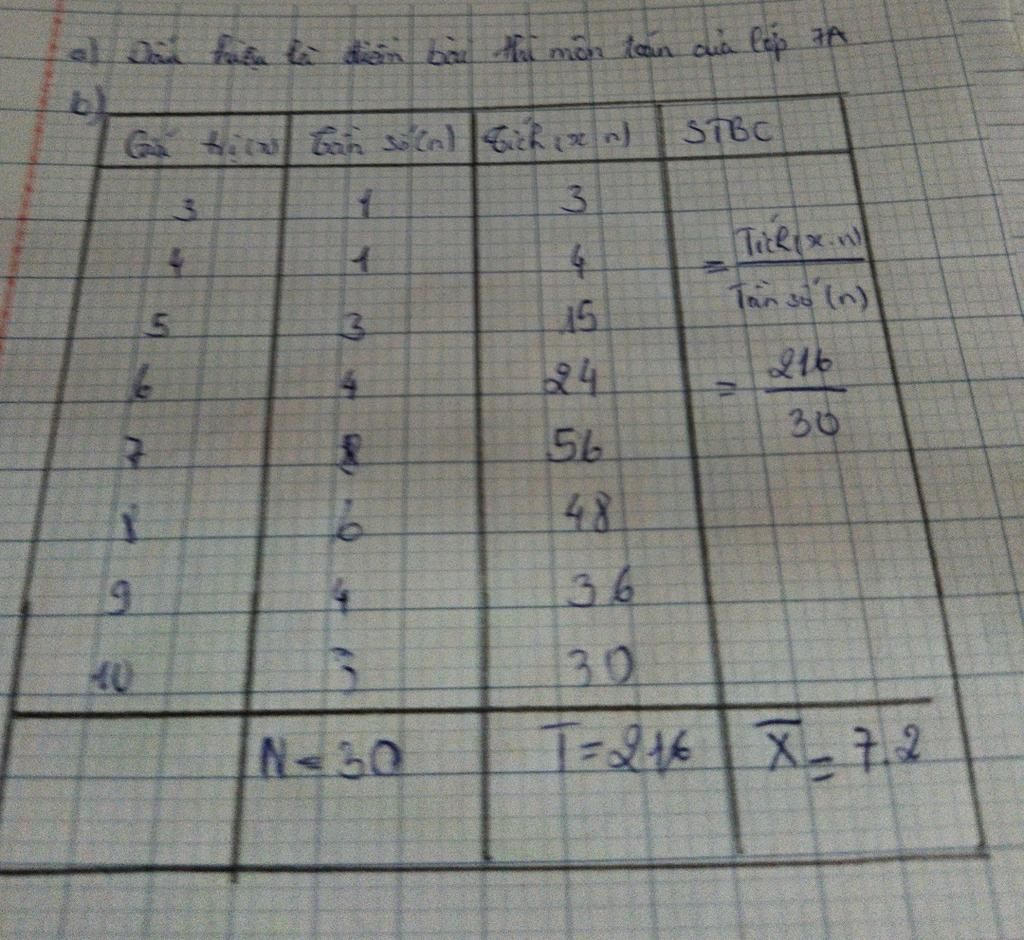 a) Dấu hiệu là điểm bài thi môn toán của lớp 7A
b)
Giá trị (x) Tần số (n) Tích (x n) STBC
3 1 3
4 1 4 = Tích (x.n) / Tần số (n)
5 3 15
6 4 24 = 216 / 30
7 8 56
8 6 48
9 4 36
10 3 30
N = 30 T = 216 X̅ = 7.2